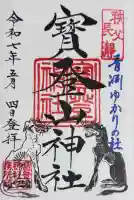 秩父
長瀞
青淵ゆかりの社
寳登山神社
令和七年五月
四日登拝